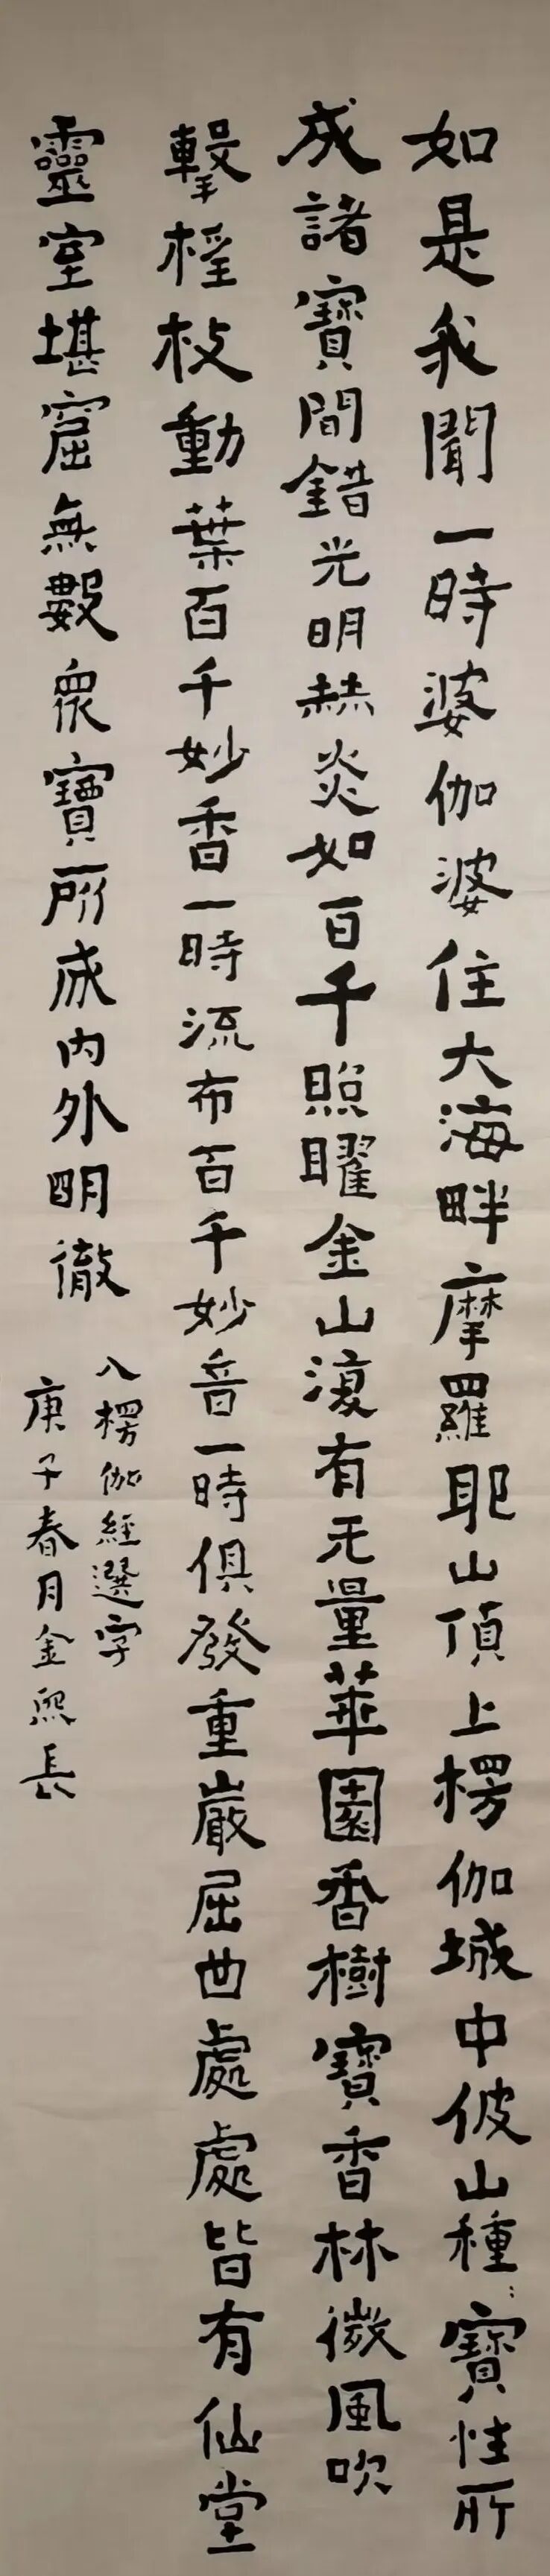 如是我聞一時婆伽婆住大海畔摩羅耶山頂上楞伽城中彼山種〻寶性所
成諸寶間錯光明赫炎如百千照曜金山復有无量華園香樹寶香林微風吹
擊搖枝動葉百千妙香一時流布百千妙音一時俱發重巖屈曲處處皆有仙堂
靈室堪窟無數衆寶所成內外明徹
入楞伽經選字
庚子春月金熙長